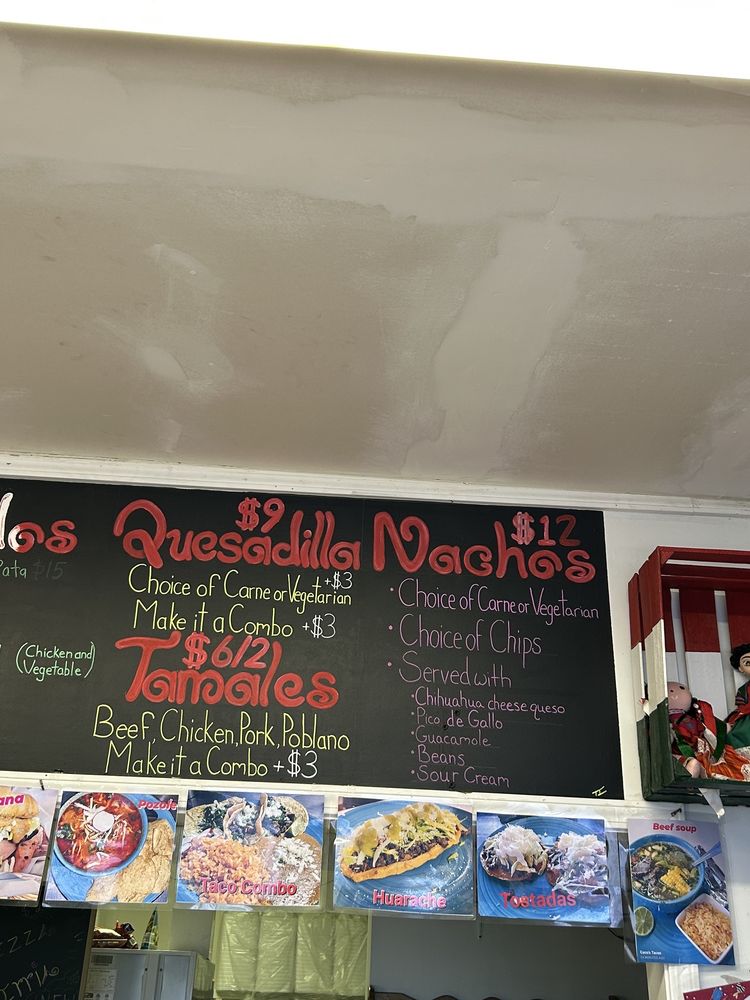 los
ata $15
(Chicken and
Vegetable)
$9
Quesadilla
Choice of Carne or Vegetarian +$3
Make it a Combo +$3
$6/2
Tamales
Beef, Chicken, Pork, Poblano
Make it a Combo +$3
$12
Nachos
• Choice of Carne or Vegetarian
• Choice of Chips
• Served with
• Chihuahua cheese queso
• Pico de Gallo
• Guacamole
• Beans
• Sour Cream
ana
Pozole
Taco Combo
Huarache
Tostadas
Beef soup